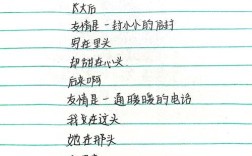 长大后
友情是一封小小的信封
男在里头
却甜在心头
后来啊
友情是一通暖暖的电话
我在这头
她在那头